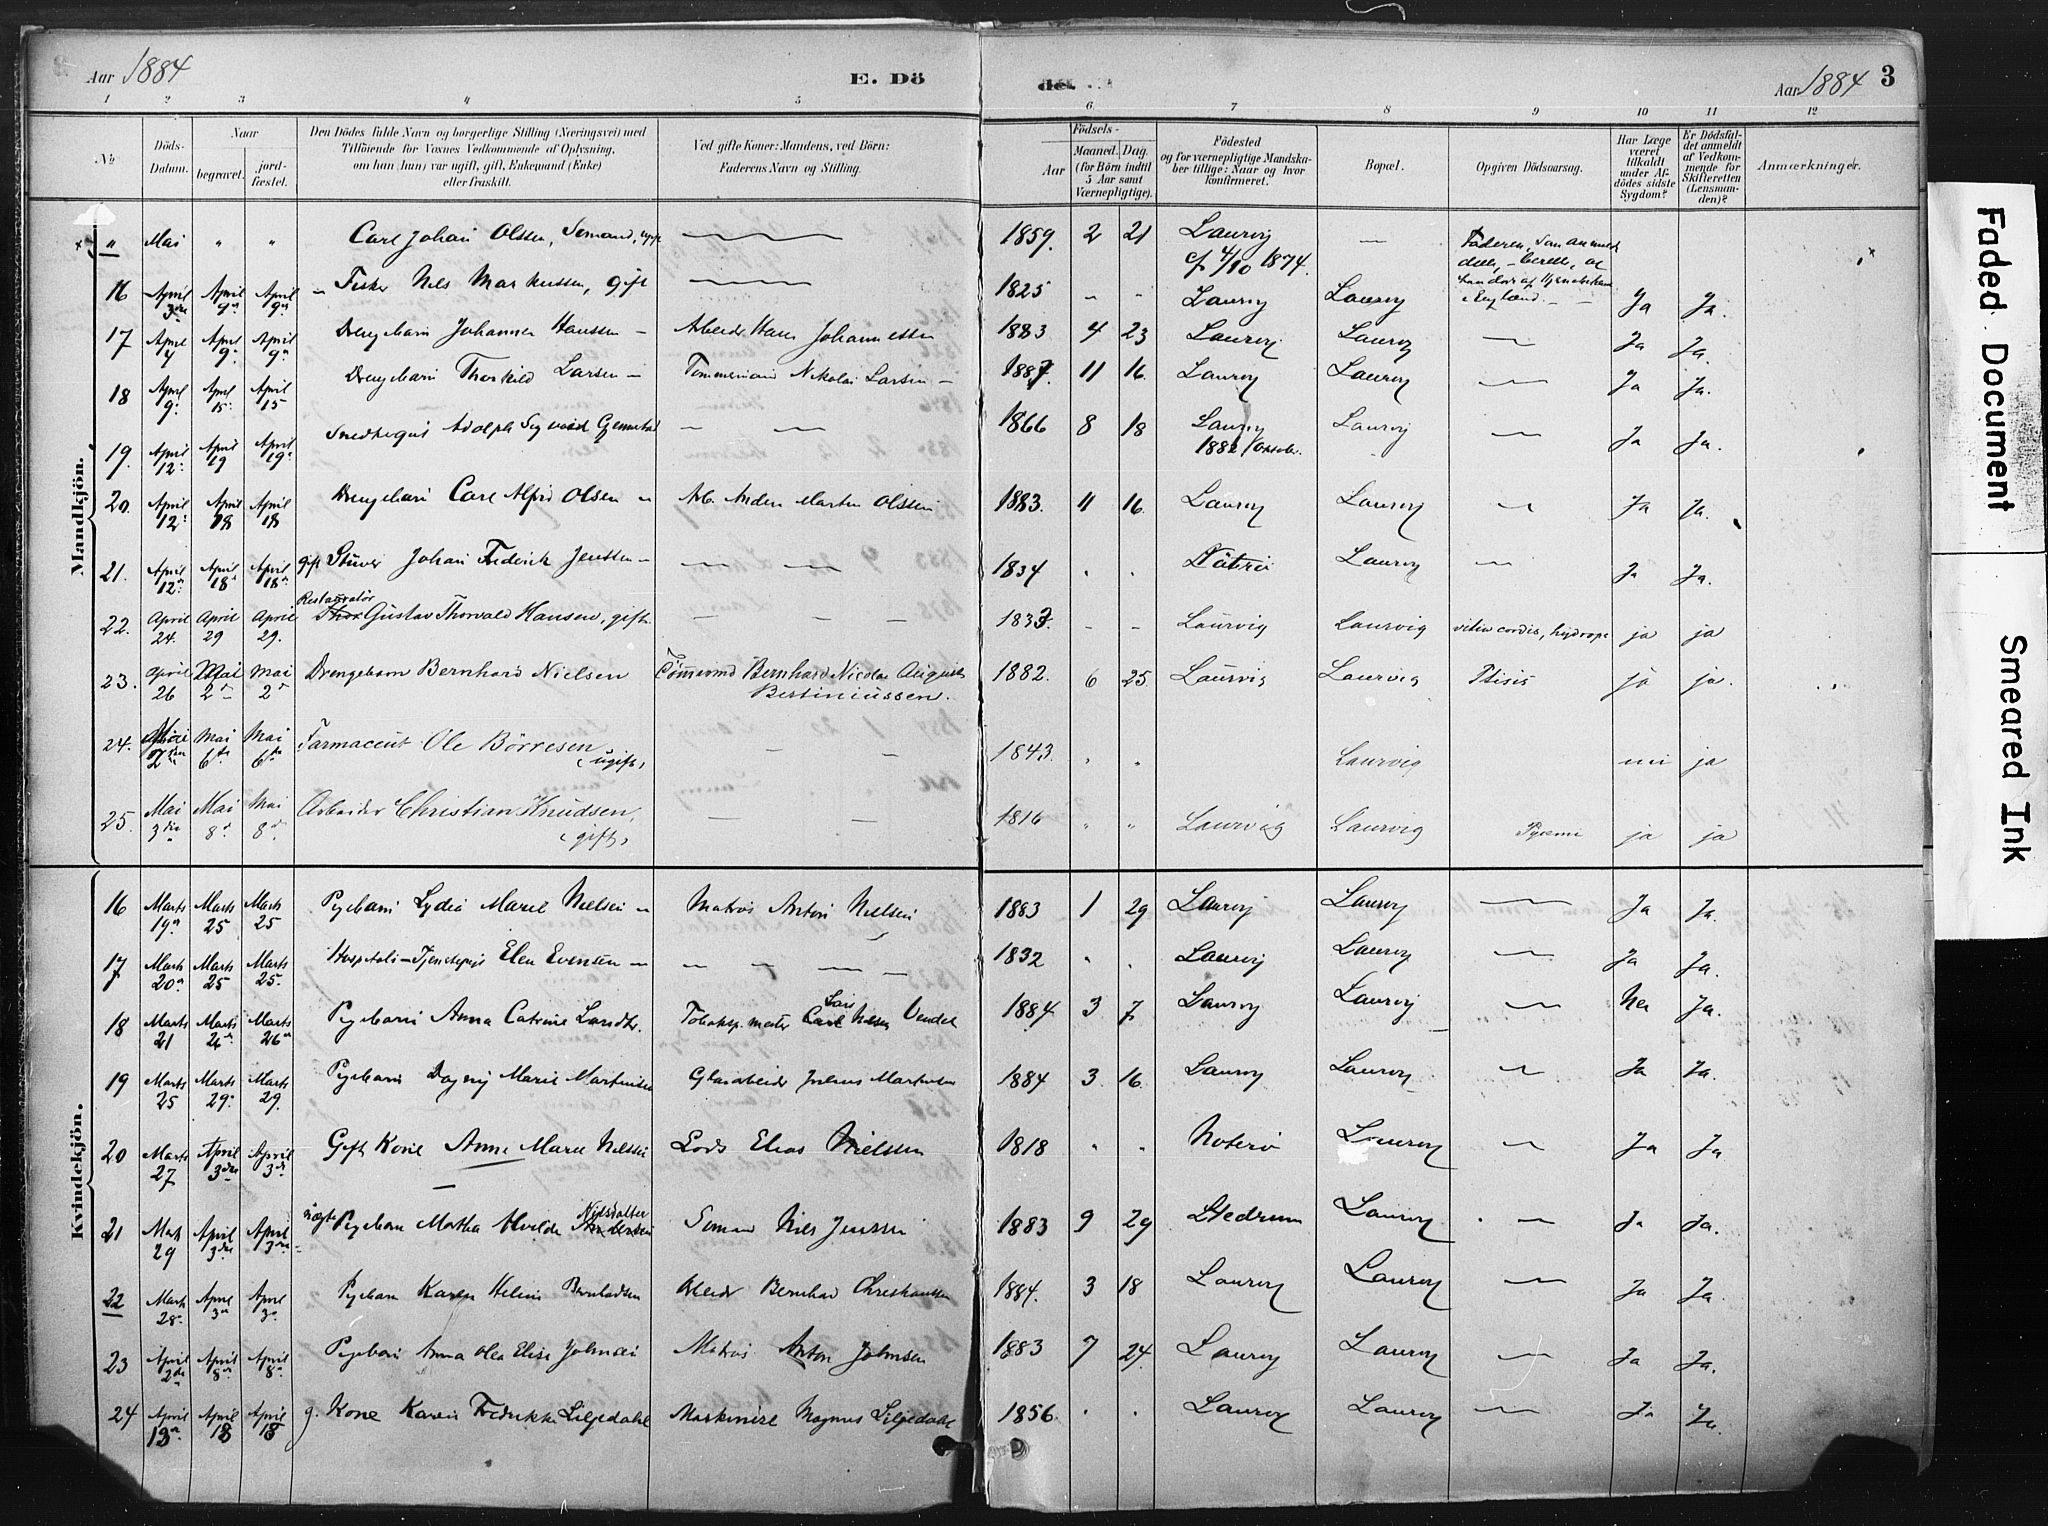 Aar 1884 E. Dö de. Aar 1884 3
1 2 3 4 5 6 7 8 9 10 11 12
№
Döds-Datum.
Naar
begravet.
jord-fæstet.
Den Dödes fulde Navn og borgerlige Stilling (Næringsvei) med
Tilföiende for Voxnes Vedkommende af Oplysning,
om han (hun) var ugift, gift, Enkemand (Enke)
eller fraskilt.
Ved gifte Koner: Mandens, ved Börn:
Faderens Navn og Stilling.
Födsels-
Aar
Maaned. Dag.
(for Börn indtil
5 Aar samt
Værnepligtige).
Födested
og for værnepligtige Mandska-
ber tillige: Naar og hvor
konfirmeret.
Bopæl.
Opgiven Dödsaarsag.
Har Læge
været
tilkaldt
under Af-
dödes sidste
Sygdom?
Er Dödsfal-
det anmeldt
af Vedkom-
mende for
Skifteretten
(Lensman-
den)?
Anmærkninger.
Mandkjön.
" Mai " " Carl Johan Olssen, Sömand, ugift 1859. 2 21 Laurvig — Faderen, som anmeldte
cf 4/10 1874.
16 April 3die April 9de April 9de Fisker Nils Markussen, gift 1825 - - Laurvig Laurvig Ja Ja.
17 April 4 April 9. April 9de Drengebarn Johannes Hanssen — Arbeider Hans Johannessen 1883 4 23 Laurvig Laurvig — Ja Ja.
18 April 9. April 15. April 15 Drengebarn Thorkild Larsen — Tømmermand Nikolai Larsen — 1883. 11 16. Laurvig Laurvig — Ja Ja.
19. April 12. April 19 April 19. Adolph Sigvald — — 1866 8 18 Laurvig Laurvig — Ja Ja.
1881 Oktober.
20. April 12. April 18 April 18 Drengebarn Carl Alfred Olsen — Arb. Anders Martin Olssen 1883. 11 16. Laurvig Laurvig — Ja Ja.
21. April 12. April 18. April 18. gift Stuver Johan Frederik Jenssen — — — 1834 . . Nøterø Laurvig — Ja Ja.
22. April 24. April 29 April 29. Restauratør Gustav Thorvald Hansen, gift. — — — 1833. - - Laurvig Laurvig vitiu cordis, hydrops ja ja
23. April 26 Mai 2 Mai 2 Drengebarn Bernhard Nielsen Tømmermd Bernhard Nicolai August
Bertiniussen. 1882. 6 25. Laurvig Laurvig Ptisis ja ja.
24. Mai 2den Mai 6te Mai 6te Farmaceut Ole Börresen — — 1843. " " Laurvig nei ja
(ugift)
25. Mai 3die Mai 8. Mai 8. Arbeider Christian Knudsen, — — 1816 " " Laurvig Laurvig Pyæmi ja ja
(gift)
Kvindekjön.
16 Marts 19. Marts 25 Marts 25 Pigebarn Lydia Marie Nielsen — Matros Anton Nielsen 1883 1 29 Laurvig Laurvig — Ja Ja.
17 Marts 20. Marts 25 Marts 25. Hospitals-Tjenestepige Elen Evensen — — — — — 1832 . . Laurvig Laurvig — Ja Ja.
18 Marts 21 Marts 26 Marts 26 Pigebarn Anna Catrine Tobaksp.mester Lars 1884 3 7 Laurvig Laurvig — Nei Ja.
19 Marts 25 Marts 29. Marts 29. Pigebarn Dagny Marie Martinsen Glasarbeider Julius Martinsen 1884 3 16. Laurvig Laurvig — Ja Ja.
20 Marts 27 April 3die April 3die Gift Kone Anne Marie Nielsen Lods Elias Nielsen 1818 . . Nøterø Laurvig — Ja Ja
21 Marts 29 April 3die April 3die uægte Pigebarn Martha Alvilde Sømand Nils Jenssen 1883 9 29 Hedrum Laurvig — Ja Ja.
22 Marts 28. April 3 April 3. Pigebarn Karen Helene Arbeider Bernhard Christianssen 1884. 3 18 Laurvig Laurvig — Ja Ja.
23 April 2den April 8 April 8. Pigebarn Anna Olea Elise Johnsen Matros Anton Johnsen 1883 7 24. Laurvig Laurvig — Ja Ja.
24 April 13. April 18 April 18 g. Kone Karen Fredrikke Liljedahl Maskinist Magnus Liljedahl 1856. . . Laurvig Laurvig — Ja Ja.
Faded Document
Smeared Ink